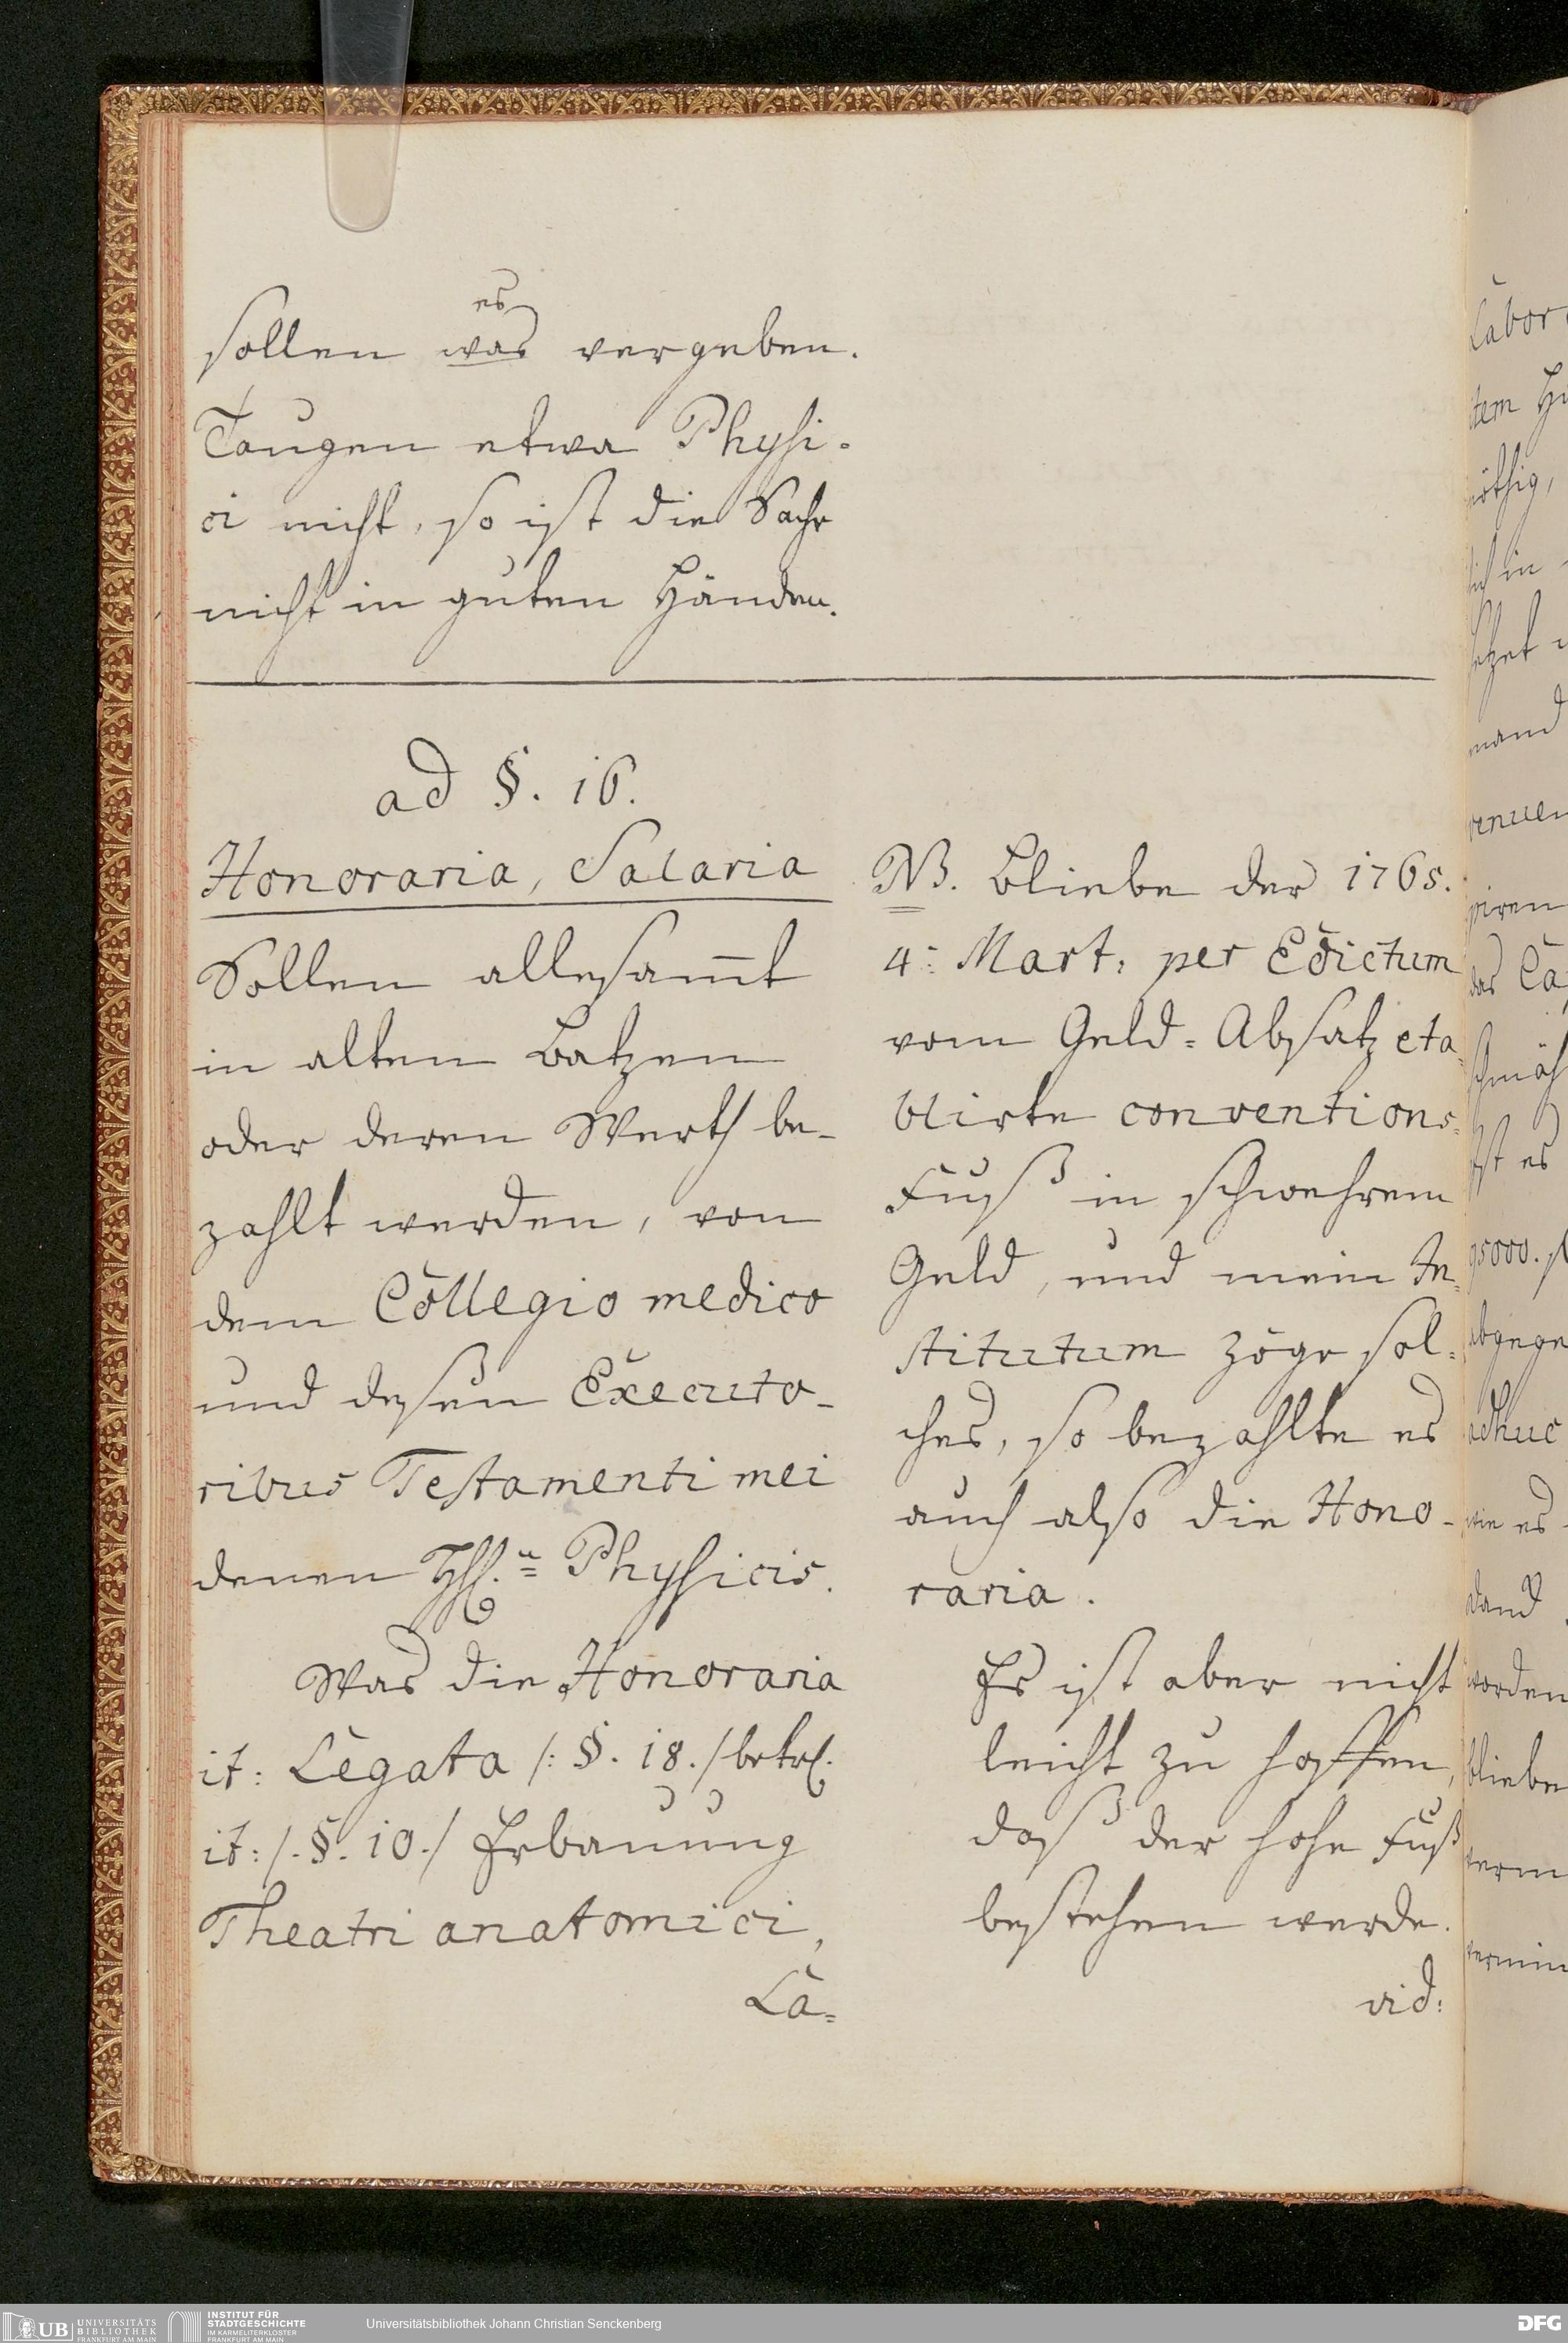 es
sollen was vergeben.
Taugen etwa Physi-
ci nicht, so ist die Sache
nicht in guten Händen.
ad §. 16.
Honoraria, Salaria
Sollen allesam̄t
in alten Batzen
oder deren Werth be-
zahlt werden, von
dem Collegio medico
und deßen Executo-
ribus Testamenti mei
denen Physicis.
Was die Honoraria
it: Legata /: §. 18./ betr.
it: /. §. 10./ Erbauung
Theatri anatomici,
La=
NB. Bliebe der 1765.
4= Mart: per Edictum
vom Geld=Absatz eta=
blirte conventions=
Fuß in schwehrem
Geld, und mein In=
stitutum zöge sol=
ches, so bezahlte es
auch also die Hono-
raria.
Es ist aber nicht
leicht zu hoffen,
daß der hohe Fuß
bestehen werde.
vid:
UB UNIVERSITÄTS
BIBLIOTHEK
FRANKFURT AM MAIN
INSTITUT FÜR
STADTGESCHICHTE
IM KARMELITERKLOSTER
FRANKFURT AM MAIN
Universitätsbibliothek Johann Christian Senckenberg
DFG